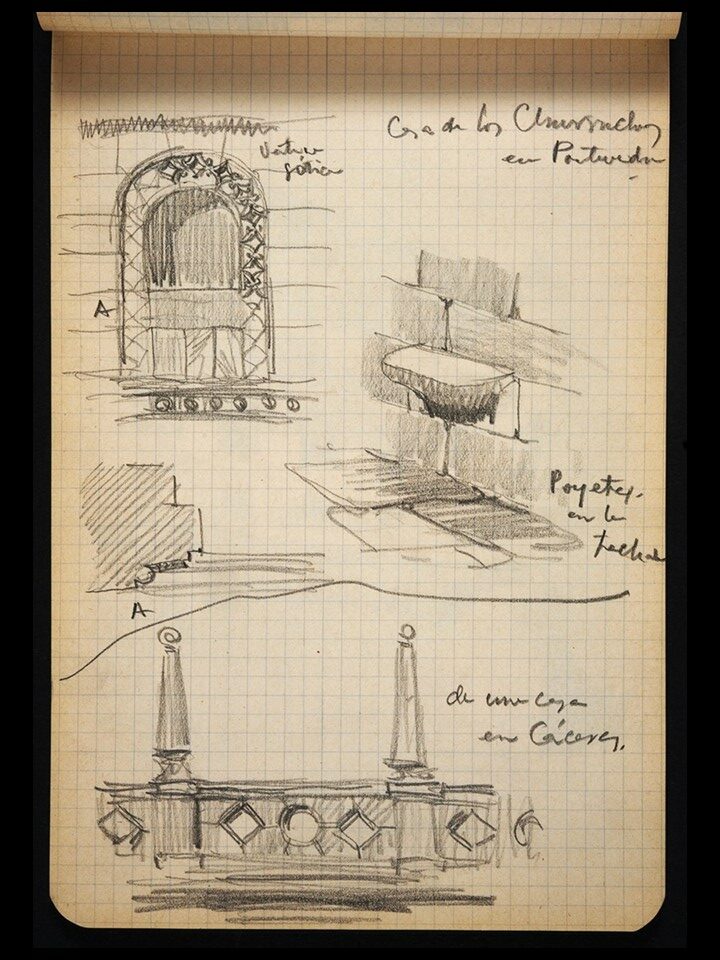 Casa de los Churruchaos
en Pontevedra
Ventana
gótica
A
Poyetes
en la
fachada
A
de una casa
en Cáceres.